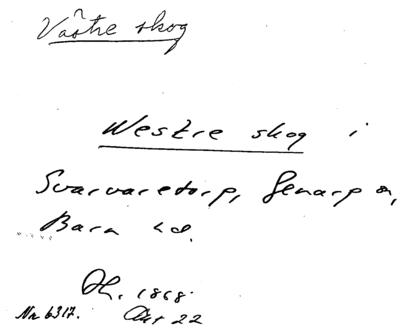 Västre skog
Westre skog i
Svarvaretorp, Genarp sn,
Bara hd.
Dh. 1868
Nr 6317. Akt 22